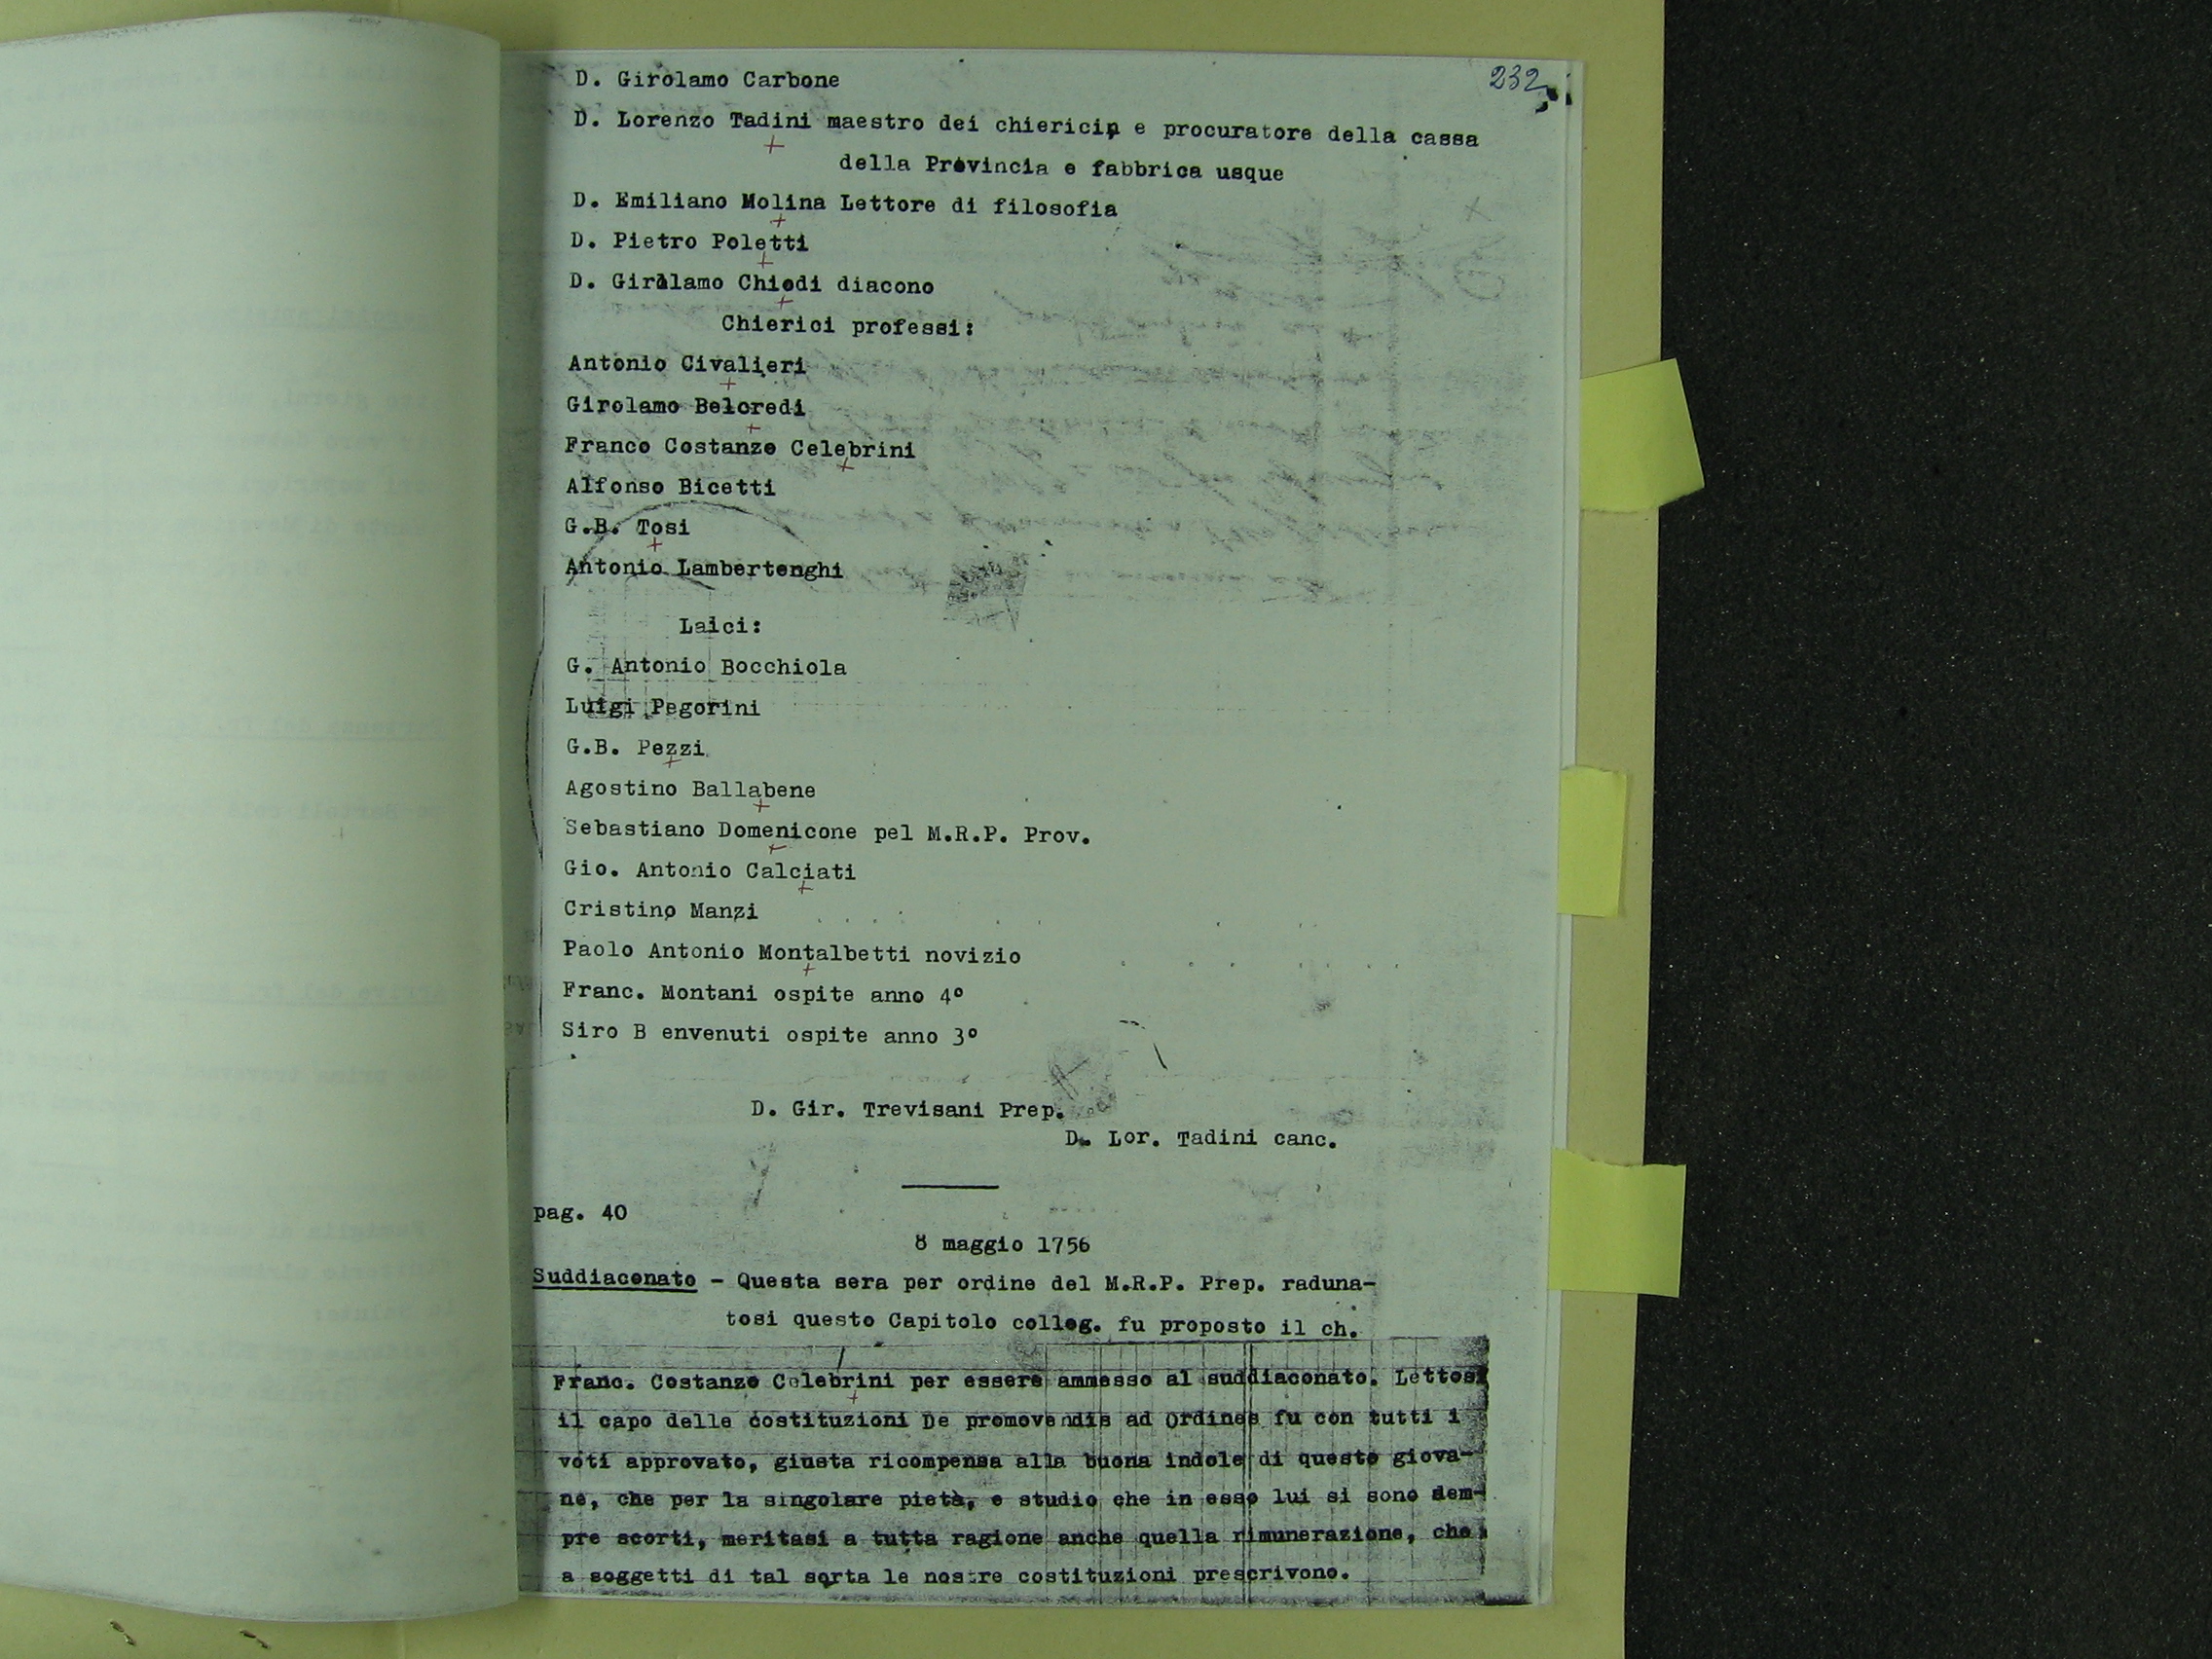 232
D. Girolamo Carbone
D. Lorenzo Tadini maestro dei chierici e procuratore della cassa
della Provincia e fabbrica usque
D. Emiliano Molina Lettore di filosofia
D. Pietro Poletti
D. Girolamo Chiodi diacono
Chierici professi:
Antonio Civalieri
Girolamo Belcredi
Franco Costanzo Celebrini
Alfonso Bicetti
G.B. Tosi
Antonio Lambertenghi
Laici:
G. Antonio Bocchiola
Luigi Pegorini
G.B. Pezzi
Agostino Ballabene
Sebastiano Domenicone pel M.R.P. Prov.
Gio. Antonio Calciati
Cristino Manzi
Paolo Antonio Montalbetti novizio
Franc. Montani ospite anno 4º
Siro B envenuti ospite anno 3º
D. Gir. Trevisani Prep.
D. Lor. Tadini canc.
pag. 40
8 maggio 1756
Suddiaconato - Questa sera per ordine del M.R.P. Prep. raduna-
tosi questo Capitolo colleg. fu proposto il ch.
Franc. Costanzo Celebrini per essere ammesso al suddiaconato. Lettosi
il capo delle costituzioni De promovendis ad Ordines fu con tutti i
voti approvato, giusta ricompensa alla buona indole di questo giova-
ne, che per la singolare pietà, e studio che in esso lui si sono sem-
pre scorti, meritasi a tutta ragione anche quella rimunerazione, che
a soggetti di tal sorta le nostre costituzioni prescrivono.